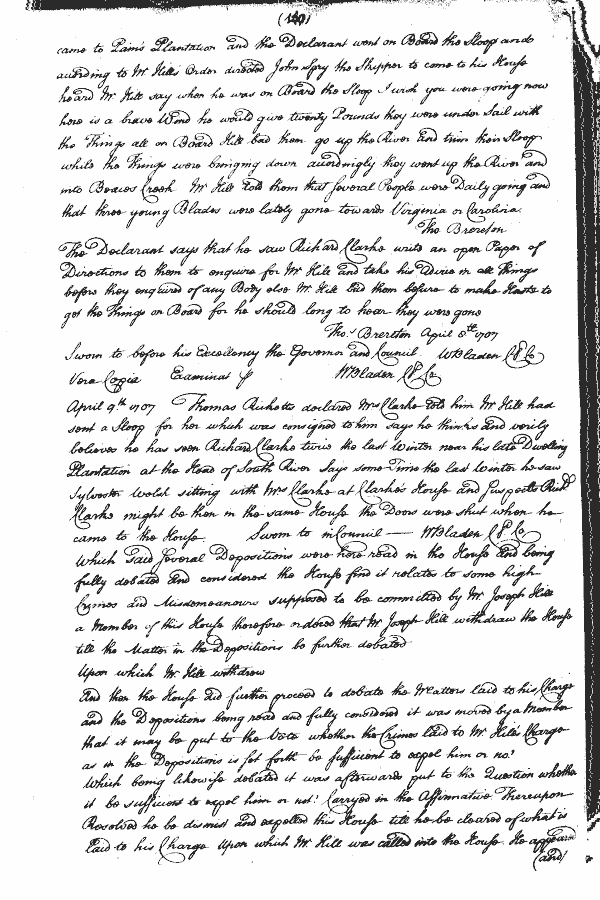 (140)
came to Pain's Plantation and the Declarant went on Board the Sloop and
according to Mr Hills Order directed John Spry the Skipper to come to his House
heard Mr Hill say when he was on Board the Sloop I wish you were going now
here is a brave Wind he would give twenty Pounds they were under Sail with
the Things all on Board Hill bad them go up the River and trim their Sloop
while the Things were bringing down accordingly they went up the River and
into Beaves Creek Mr Hill told them that several People were Daily going and
that three young Blades were lately gone towards Virginia or Carolina.
Tho Brereton
The Declarant says that he saw Richard Clarke write an open Paper of
Directions to them to enquire for Mr Hill and take his Advice in all Things
before they enquired of any Body else Mr Hill bid them besure to make Haste to
get the Things on Board for he should long to hear they were gone
Thos. Brereton April 8th 1707
Sworn to before his Excellency the Governor and Council W Bladen Cl Co
Vera Copia Examinat p W Bladen Cl Co
April 9th 1707 Thomas Ricketts declared Mrs Clarke told him Mr Hill had
sent a Sloop for her which was consigned to him says he thinks and verily
believes he has seen Richard Clarke twice the last Winter near his late Dwelling
Plantation at the Head of South River Says some Time the last Winter he saw
Sylvester Welsh sitting with Mrs Clarke at Clarke's House and suspects Richd
Clarke might be then in the same House the Doors were shut when he
came to the House Sworn to in Council — W Bladen Cl Co
Which said several Depositions were here read in the House and being
fully debated and considered the House find it relates to some high
Crimes and Misdemeanours supposed to be committed by Mr Joseph Hill
a Member of this House therefore ordered that Mr Joseph Hill withdraw the House
till the Matter in the Depositions be further debated
Upon which Mr Hill withdrew
And then the House did further proceed to debate the Matters laid to his Charge
and the Depositions being read and fully considered it was moved by a Member
that it may be put to the Vote whether the Crimes laid to Mr Hill's Charge
as in the Depositions is set forth be sufficient to expel him or no?
Which being likewise debated it was afterwards put to the Question whether
it be sufficient to expel him or not? Carryed in the Affirmative Thereupon
Resolved he be dismist and expelled this House till he be cleared of what is
laid to his Charge Upon which Mr Hill was called into the House. He appearing
(and)